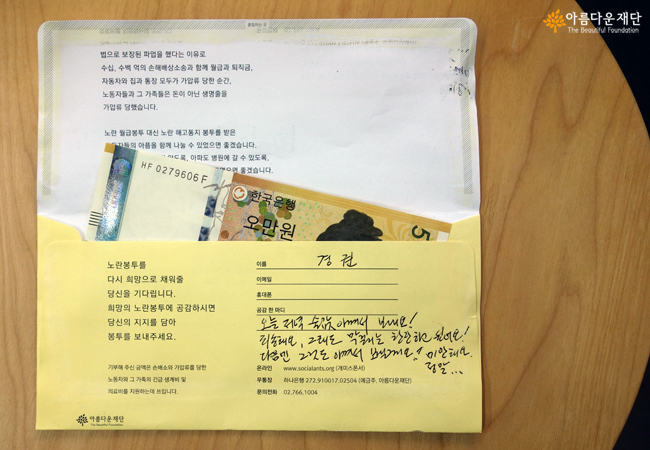 아름다운재단
The Beautiful Foundation
법으로 보장된 파업을 했다는 이유로
수십, 수백 억의 손해배상소송과 함께 월급과 퇴직금,
자동차와 집과 통장 모두가 가압류 당한 순간,
노동자들과 그 가족들은 돈이 아닌 생명줄을
가압류 당했습니다.
노란 월급봉투 대신 노란 해고통지 봉투를 받은
아픔을 함께 나눌 수 있었으면 좋겠습니다.
아파도 병원에 갈 수 있도록,
좋겠습니다.
HF 0279606 F
한국은행
오만원
5
노란봉투를
다시 희망으로 채워줄
당신을 기다립니다.
희망의 노란봉투에 공감하시면
당신의 지지를 담아
봉투를 보내주세요.
기부해 주신 금액은 손배소와 가압류를 당한
노동자와 그 가족의 긴급 생계비 및
의료비를 지원하는데 쓰입니다.
아름다운재단
The Beautiful Foundation
이름 경 권
이메일
휴대폰
공감 한 마디
오늘 저녁 술값 아껴서 보내요!
죄송해요, 그래도 막걸리는 한잔하고 있어요!
다음엔 그것도 아껴서 미안해요.
정말...
온라인 www.socialants.org (개미스폰서)
우통장 하나은행 272.910017.02504 (예금주. 아름다운재단)
문의전화 02.766.1004